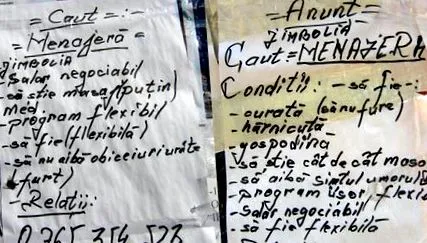 = Caut =:-
= Menajeră =
JIMBOLIA
- Salar negociabil
- să știe masaj (puțin)
med.
- program flexibil
- să fie (flexibilă)
- să nu aibă obicciuri urâte
(furt)
- Relații:
0765 354 528
= Anunț =
JIMBOLIA
Caut = MENAJERĂ
Condiții: - să fie -:
- curată (să nu fure)
- hărnicuță
- gospodină
- să știe cât de cât masa
- să aibă simțul umorului
- program ușor flexi
- Salar negociabil
- să fie flexibilă